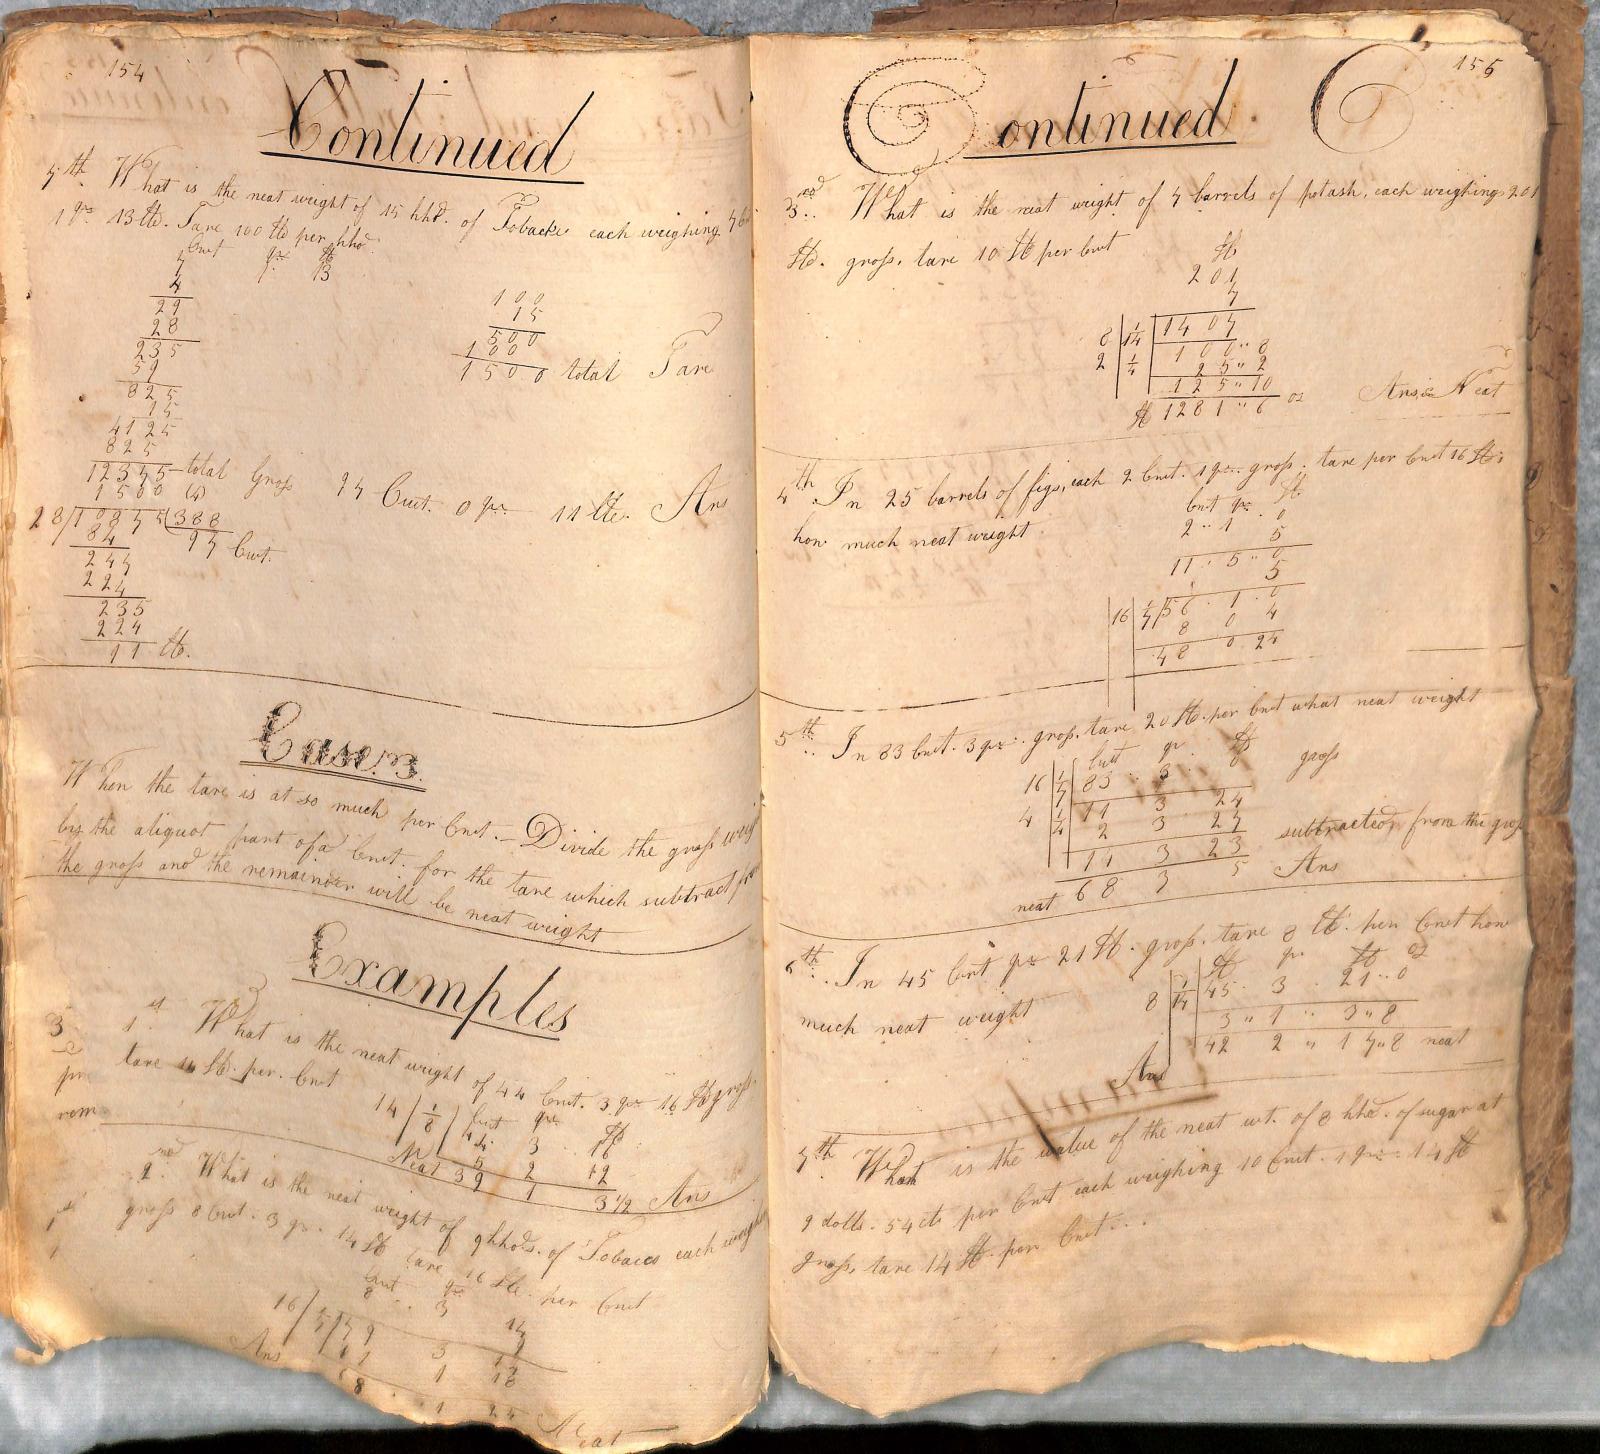 154
Continued
7th What is the neat weight of 15 hhd. of Tobacko each weighing 7 Cwt
1 qr 13 lb. Tare 100 lb per hhd.
Cwt qr lb
7 1 13
4
29
28
235
59
825
15
4125
825
12375 total Gross
1500 (4)
28/10875(388
84 97 Cwt.
247
224
235
224
11 lb.
100
15
500
100
1500 total Tare
97 Cwt. 0 qr. 11 lb. Ans
Case. 3.
When the tare is at so much per Cwt. Divide the gross
by the aliquot part of a Cwt. for the tare which subtract
the gross and the remainder will be neat weight
Examples
1st What is the neat weight of 44 Cwt. 3 qr 16 lb gross.
tare 14 lb. per. Cwt
14 1/8 Cwt qr lb
44 3 16
5 2 12
Neat 39 1 3 1/2 Ans
3
pr
rem
2nd What is the neat weight of 9 hhds. of Tobacco each
gross 8 Cwt. 3 qr. 14 lb tare 16 lb. per Cwt
Cwt qr
8 3 14
9
16 79 3 14
11 1 18
Ans 68 1 24 Neat
155
Continued
3rd What is the neat weight of 7 barrels of potash, each weighing 201
lb. gross, tare 10 lb per Cwt
lb
201
7
8 1/14 1407
2 1/4 100 " 8
25 " 2
125 " 10
lb 1281 " 6 oz Ans. Neat
4th In 25 barrels of figs, each 2 Cwt. 1 qr. gross. tare per Cwt 16 lb:
how much neat weight
Cwt qr. lb
2 " 1 . 0
5
11 . 5 " 0
5
16 1/7 56 . 1 . 0
8 0 4
48 0 24
5th In 83 Cwt. 3 qr. gross. tare 20 lb. per Cwt what neat weight
Cwt qr. lb
16 1/7 83 . 3 gross
4 1/4 11 3 24
2 3 27
14 3 23 subtracted from the gross
neat 68 3 5 Ans
6th In 45 Cwt qr 21 lb. gross. tare 8 lb. per Cwt how
much neat weight
lb qr. lb oz
8 1/14 45 . 3 . 21 . 0
3 " 1 " 3 " 8
42 2 " 17 " 8 neat
Ans
7th What is the value of the neat wt. of 8 hhd. of sugar at
9 dolls. 54 cts per Cwt each weighing 10 Cwt. 1 qr 14 lb
gross, tare 14 lb. per Cwt...